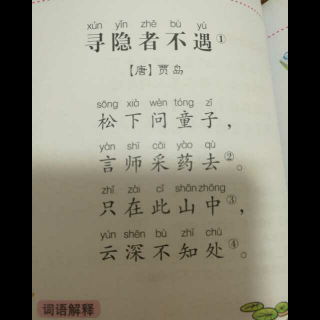 xún yǐn zhě bù yù
寻隐者不遇①
【唐】贾岛
sōng xià wèn tóng zǐ
松下问童子，
yán shī cǎi yào qù
言师采药去②。
zhǐ zài cǐ shān zhōng
只在此山中③，
yún shēn bù zhī chù
云深不知处④。
词语解释